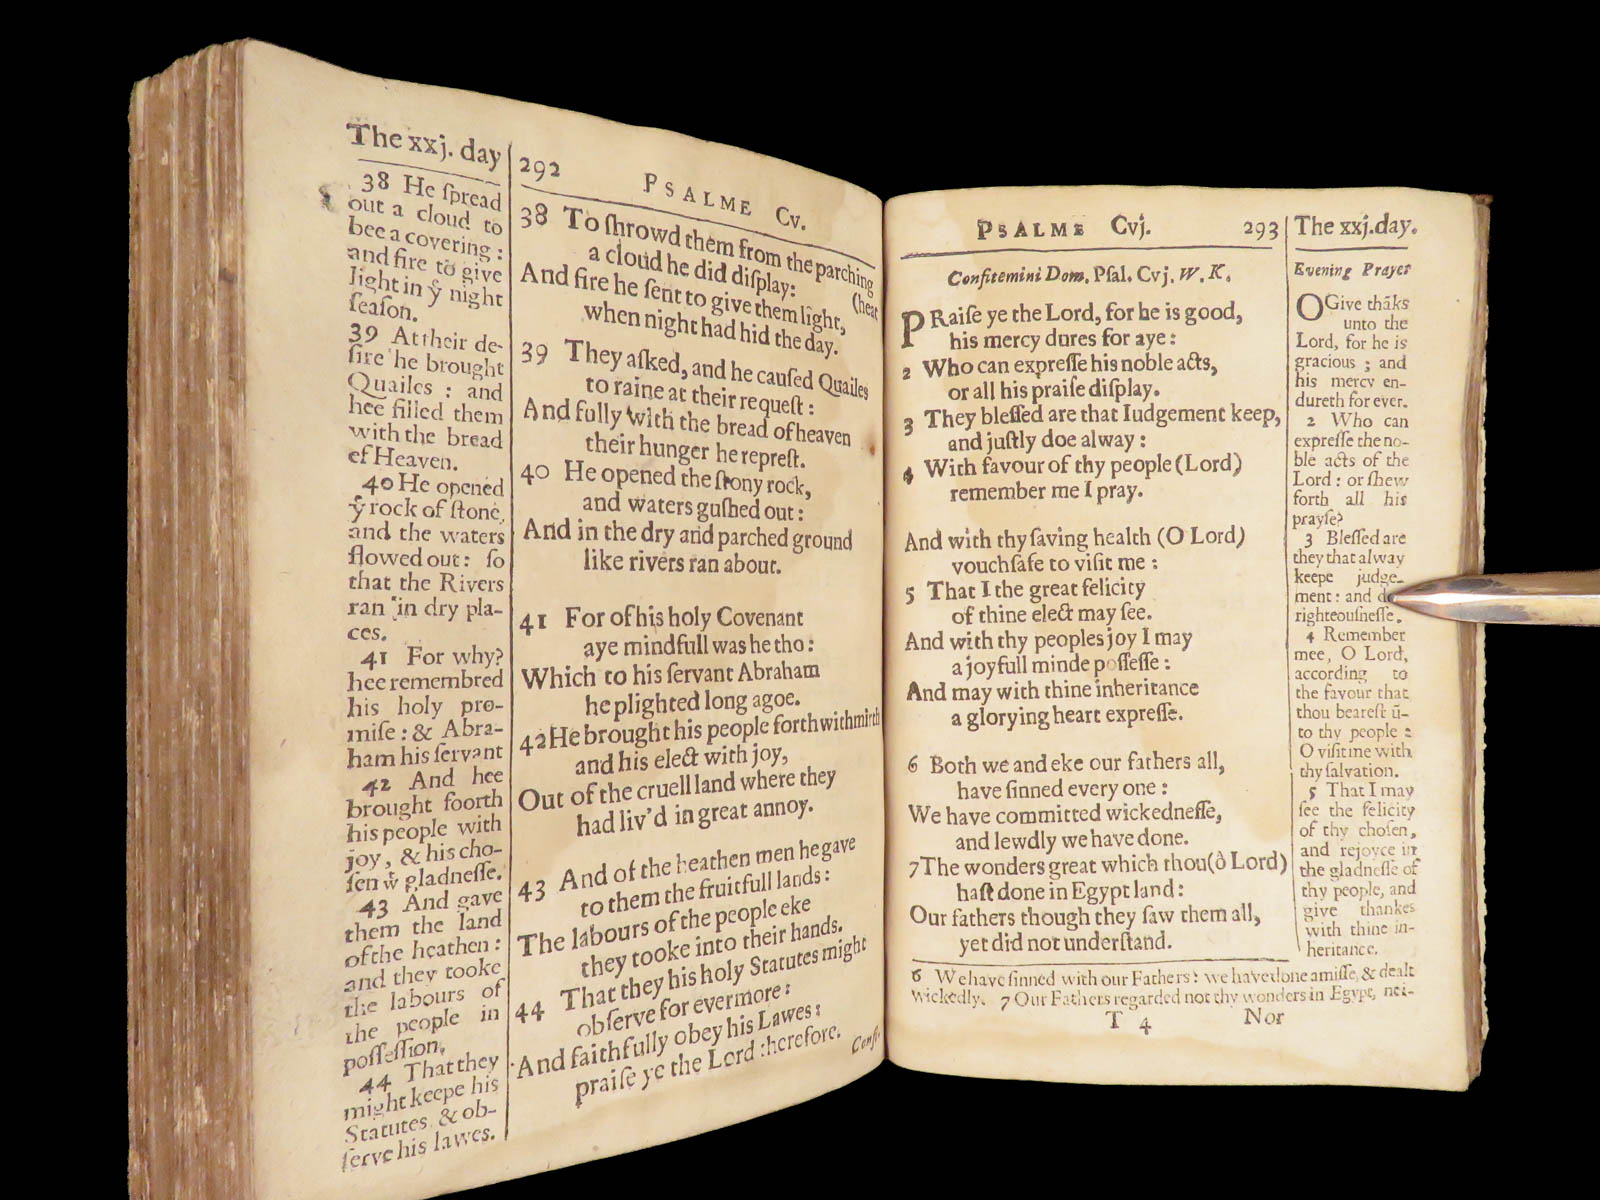 The xxj. day
38 He ſpread
out a cloud to
bee a covering :
and fire to give
light in ẏ night
ſeaſon.
39 At their de-
ſire he brought
Quailes : and
hee filled them
with the bread
of Heaven.
40 He opened
ẏ rock of ſtone,
and the waters
flowed out: ſo
that the Rivers
ran in dry pla-
ces.
41 For why?
hee remembred
his holy pro-
miſe : & Abra-
ham his ſervant
42 And hee
brought foorth
his people with
joy, & his cho-
ſen w̉ gladneſſe.
43 And gave
them the land
of the heathen :
and they tooke
the labours of
the people in
poſſeſſion.
44 That they
might keepe his
Statutes & ob-
ſerve his lawes.
292
PSALME Cv.
38 To ſhrowd them from the parching
(heat
a cloud he did diſplay:
And fire he ſent to give them light,
when night had hid the day.
39 They aſked, and he cauſed Quailes
to raine at their requeſt :
And fully with the bread of heaven
their hunger he repreſt.
40 He opened the ſtony rock,
and waters guſhed out :
And in the dry and parched ground
like rivers ran about.
41 For of his holy Covenant
aye mindfull was he tho :
Which to his ſervant Abraham
he plighted long agoe.
42 He brought his people forth with mirth
and his elect with joy,
Out of the cruell land where they
had liv'd in great annoy.
43 And of the heathen men he gave
to them the fruitfull lands :
The labours of the people eke
they tooke into their hands.
44 That they his holy Statutes might
obſerve for evermore :
And faithfully obey his Lawes :
praiſe ye the Lord therefore.
Confi-
PSALME Cvj.
293
Confitemini Dom. Pſal. Cvj. W. K.
PRaiſe ye the Lord, for he is good,
his mercy dures for aye :
2 Who can expreſſe his noble acts,
or all his praiſe diſplay.
3 They bleſſed are that Iudgement keep,
and juſtly doe alway :
4 With favour of thy people (Lord)
remember me I pray.
And with thy ſaving health (O Lord)
vouchſafe to viſit me :
5 That I the great felicity
of thine elect may ſee.
And with thy peoples joy I may
a joyfull minde poſſeſſe :
And may with thine inheritance
a glorying heart expreſſe.
6 Both we and eke our fathers all,
have ſinned every one :
We have committed wickedneſſe,
and lewdly we have done.
7 The wonders great which thou (ô Lord)
haſt done in Egypt land :
Our fathers though they ſaw them all,
yet did not underſtand.
The xxj. day.
Evening Prayer
O Give thãks
unto the
Lord, for he is
gracious ; and
his mercy en-
dureth for ever.
2 Who can
expreſſe the no-
ble acts of the
Lord : or ſhew
forth all his
prayſe?
3 Bleſſed are
they that alway
keepe judge-
ment : and
righteouſneſſe.
4 Remember
mee, O Lord,
according to
the favour that
thou beareſt ũ-
to thy people :
O viſit me with
thy ſalvation.
5 That I may
ſee the felicity
of thy choſen,
and rejoyce in
the gladneſſe of
thy people, and
give thankes
with thine in-
heritance.
6 We have ſinned with our Fathers : we have done amiſſe, & dealt
wickedly. 7 Our Fathers regarded not thy wonders in Egypt, nei-
T 4
Nor